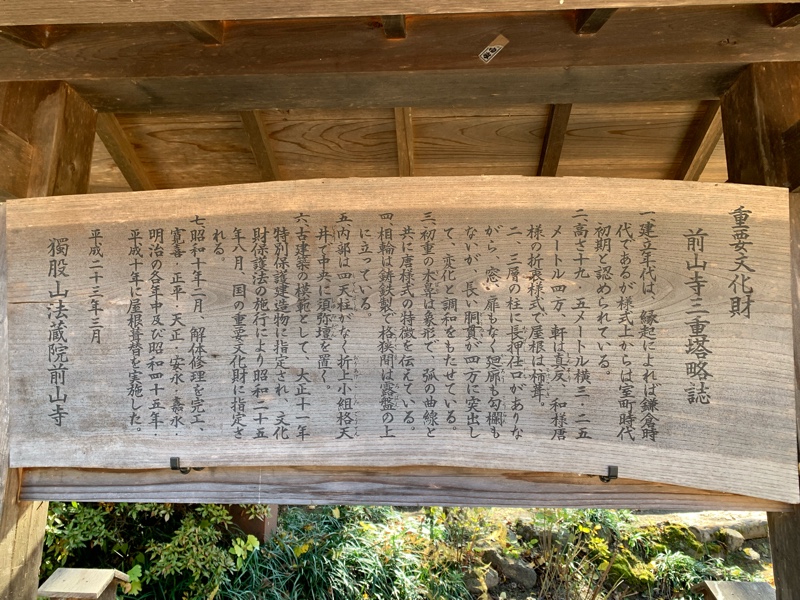 重要文化財
前山寺三重塔略誌
一、建立年代は、縁起によれば鎌倉時
代であるが様式上からは室町時代
初期と認められている。
二、高さ十九．五メートル横三．二五
メートル四方・軒は真反・和様唐
様の折衷様式で屋根は柿葺。
二、三層の柱に長押仕口がありな
がら、窓、扉もなく廻廊も勾欄も
ないが、長い胴貫が四方に突出し
て、変化と調和をもたせている。
三、初重の木鼻は象形で、弧の曲線と
共に唐様式の特徴を伝えている。
四、相輪は鋳鉄製で格狭間は露盤の上
に立っている。
五、内部は四天柱がなく折上小組格天
井で中央に須弥壇を置く。
六、古建築の模範として、大正十一年
特別保護建造物に指定され、文化
財保護法の施行により昭和二十五
年八月、国の重要文化財に指定さ
れる。
七、昭和十年二月、解体修理を完工、
寛喜・正平・天正・安永・嘉永・
明治の各年中及び昭和四十五年・
平成十年に屋根葺替を実施した。
平成二十三年三月
獨股山法蔵院前山寺